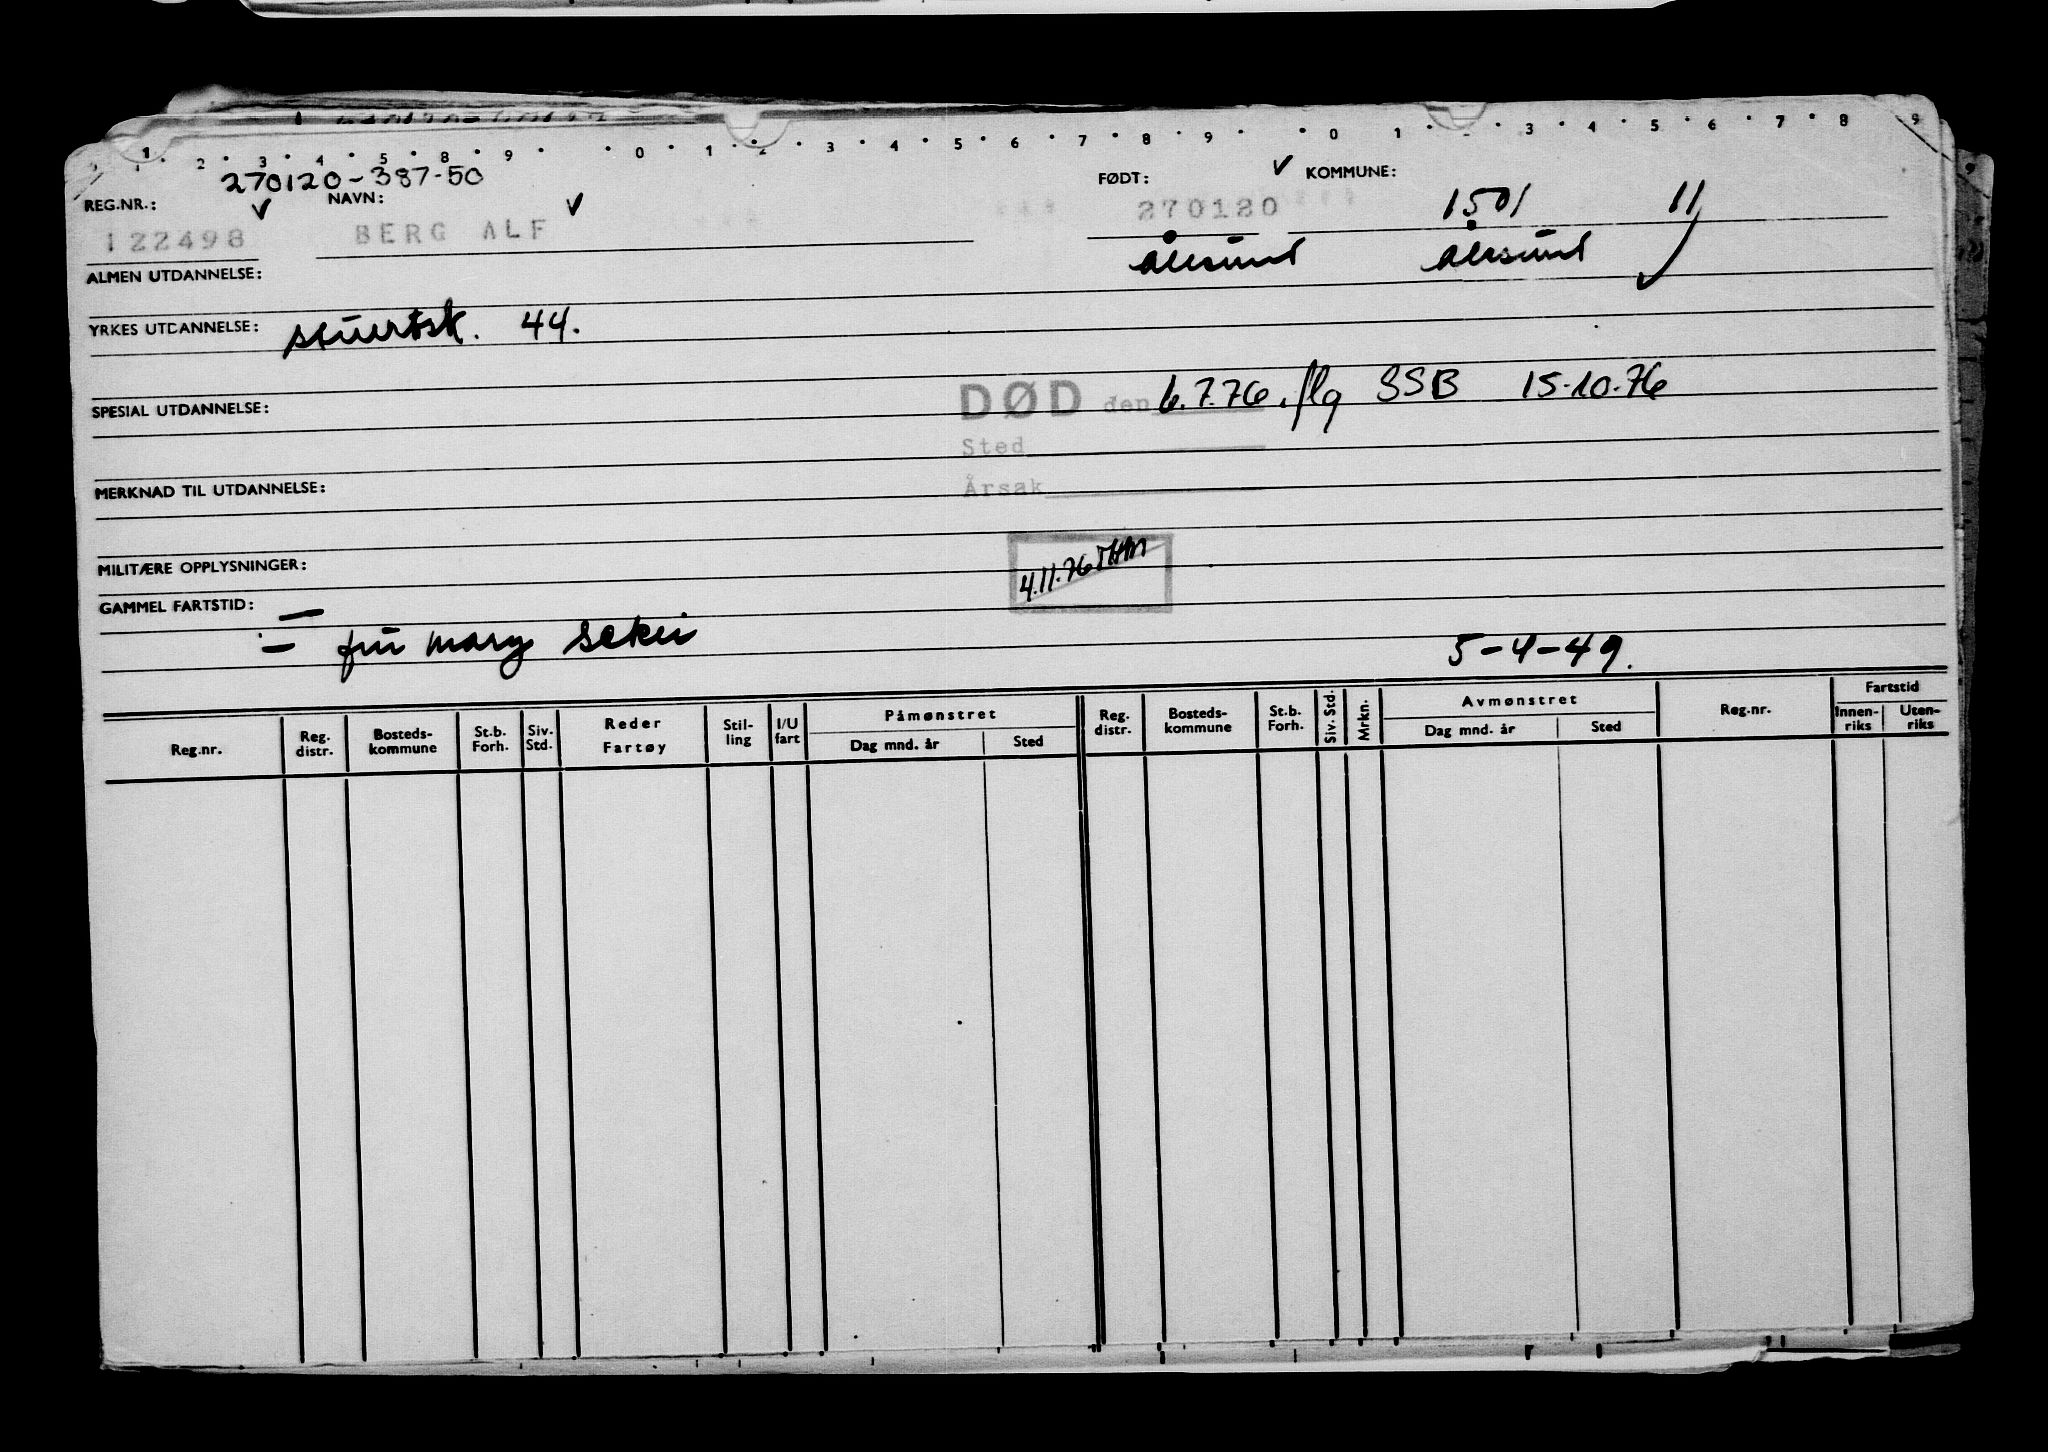 1 2 3 4 5 8 9 0 1 2 3 4 5 6 7 8 9 0 1 3 4 5 6 7 8 9
270120-387-50
REG.NR.: NAVN: FØDT: KOMMUNE:
122498 BERG ALF 270120 1501 11
Ålesund Ålesund
ALMEN UTDANNELSE:
YRKES UTDANNELSE: stuertsk. 44.
SPESIAL UTDANNELSE:
DØD den 6.7.76. flg SSB 15-10-76
Sted
Årsak
MERKNAD TIL UTDANNELSE:
MILITÆRE OPPLYSNINGER:
4.11.76
GAMMEL FARTSTID:
mary 5-4-49.
Reg.nr. Reg. distr. Bosteds-kommune St.b. Forh. Siv. Std. Reder Fartøy Stil-ling I/U fart Påmønstret Dag mnd. år Sted Reg. distr. Bosteds-kommune St.b. Forh. Siv. Std. Mrkn. Avmønstret Dag mnd. år Sted Reg.nr. Fartstid Innen-riks Uten-riks